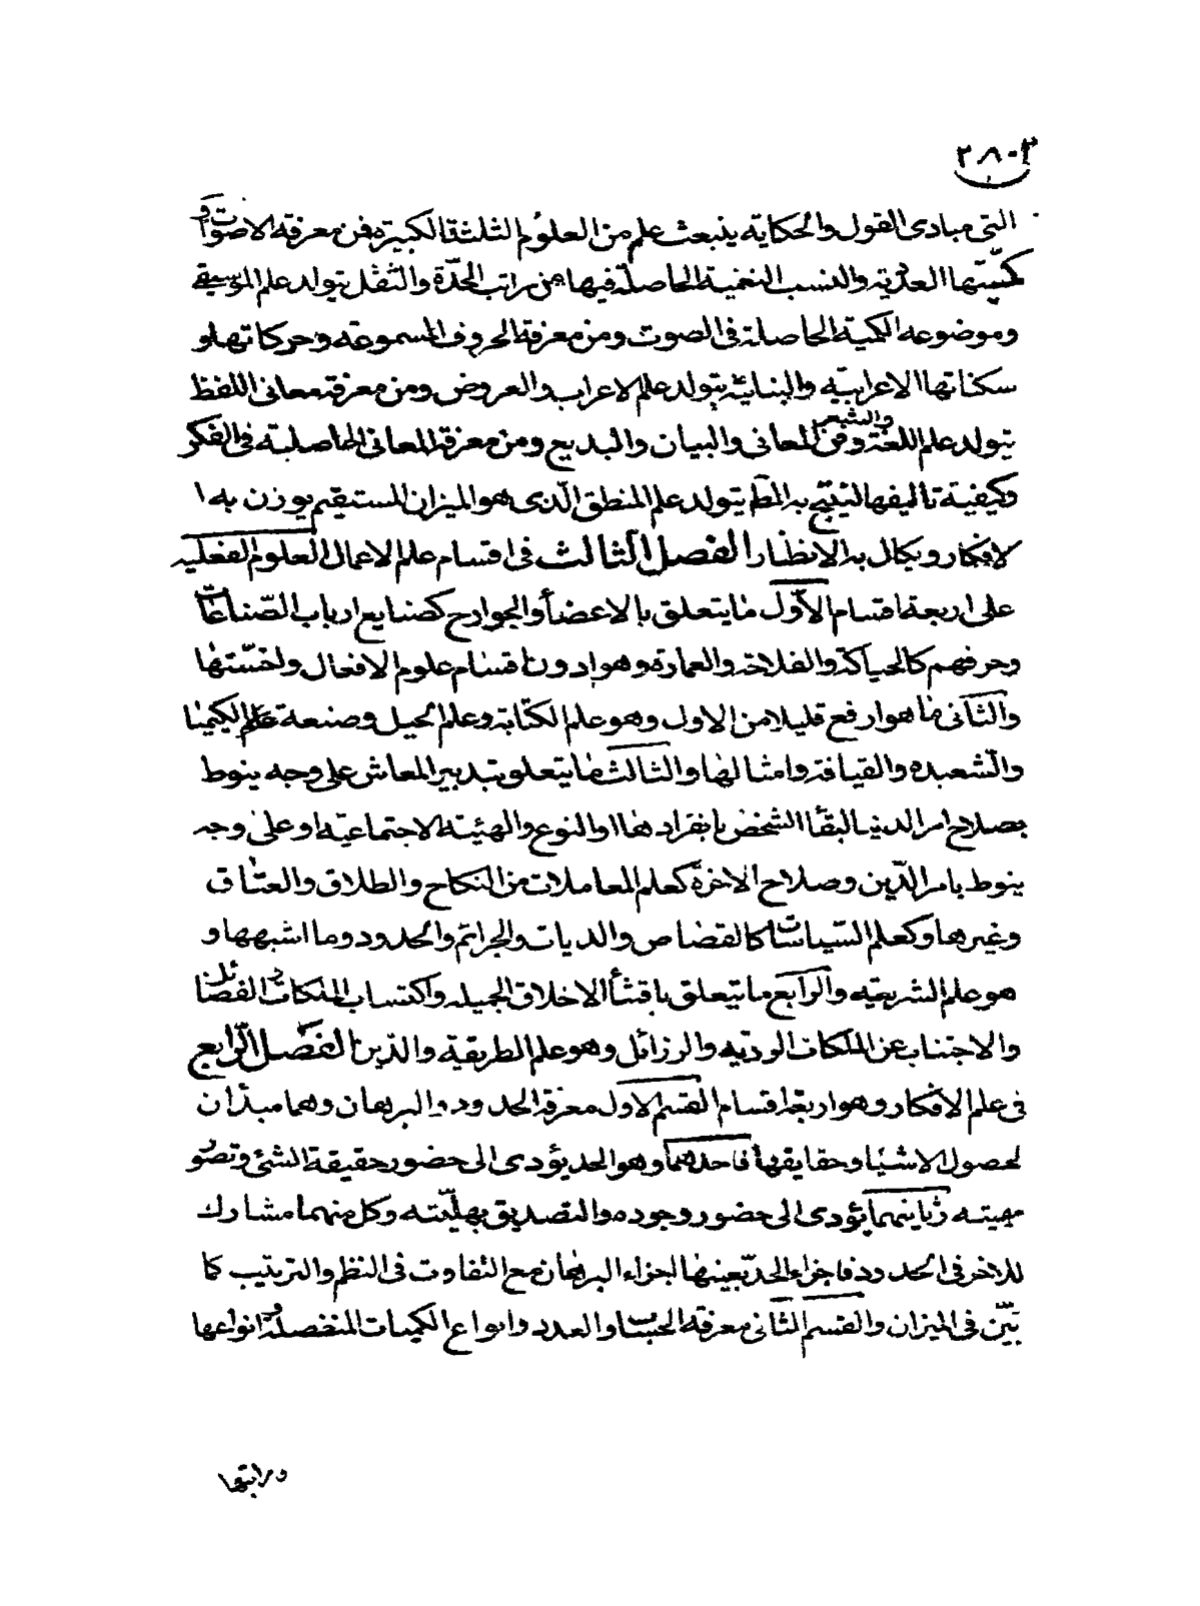 ٢٨٠٣
التى مبادى القول والحكاية ينبعث علم من العلوم الثلثة الكبيرة فمن معرفة الاصوات و
كميّتها العددية والنسب النغمية الحاصلة فيها من مراتب الحدّة والثقل يتولد علم الموسيقى
وموضوعه الكمية الحاصلة فى الصوت ومن معرفة الحروف المسموعة وحركاتها و
سكناتها الاعرابيّه والبنائيّه يتولد علم الاعراب والعروض ومن معرفة معانى اللفظ
يتولد علم اللغة والشعر وفن المعانى والبيان والبديع ومن معرفة المعانى الحاصلة فى الفكر
وكيفية تاليفها لينتج به المط يتولد علم المنطق الّذى هو الميزان المستقيم يوزن به ا
لافكار ويكال به الانظار الفصل الثالث فى اقسام علم الاعمال العلوم الفعليه
على اربعة اقسام الأوّل ما يتعلق بالاعضأ والجوارح كصنايع ارباب الصّناعات
وحرفهم كالحياكة والفلاحة والعمارة وهو ادون اقسام علوم الافعال واخسّتها
والثانى ما هو ارفع قليلا من الاول وهو علم الكتابة وعلم الحيل وصنعة علم الكيميا
والشعبده والقيافة وامثالها والثالث ما يتعلق بتدبير المعاش على وجه ينوط
بصلاح امر الدنيا لبقأ الشخص بانفرادها او النوع والهيئة الاجتماعيّة او على وجه
ينوط بامر الدّين وصلاح الاخرة كعلم المعاملات من النكاح والطلاق والعتاق
وغيرها وكعلم السّياسات كالقصاص والديات والجرائم والحدود وما اشبهها و
هو علم الشريعة والرّابع ما يتعلق باقتنأ الاخلاق الجميله واكتساب الملكات و الفضائل
والاجتناب عن الملكات الرديه والرزائل وهو علم الطريقة والدّين الفصل الرّابع
فى علم الافكار وهو اربعة اقسام القسم الاول معرفة الحدود والبرهان وهما مبدأن
لحصول الاشيا وحقايقها فاحدهما وهو الحد يؤدى الى حضور حقيقة الشئ وتصّور
مهيته وثانيهما يؤدى الى حضور وجوده والتصديق بهليّته وكل منهما مشارك
للاخر فى الحدود فاجزاء الحدّ بعينها اجزاء البرهان مع التفاوت فى النظم والترتيب كما
بيّن فى الميزان والقسم الثّانى معرفة الحساب والعدد وانواع الكميات المنفصلة و انواعها
ومراتبها